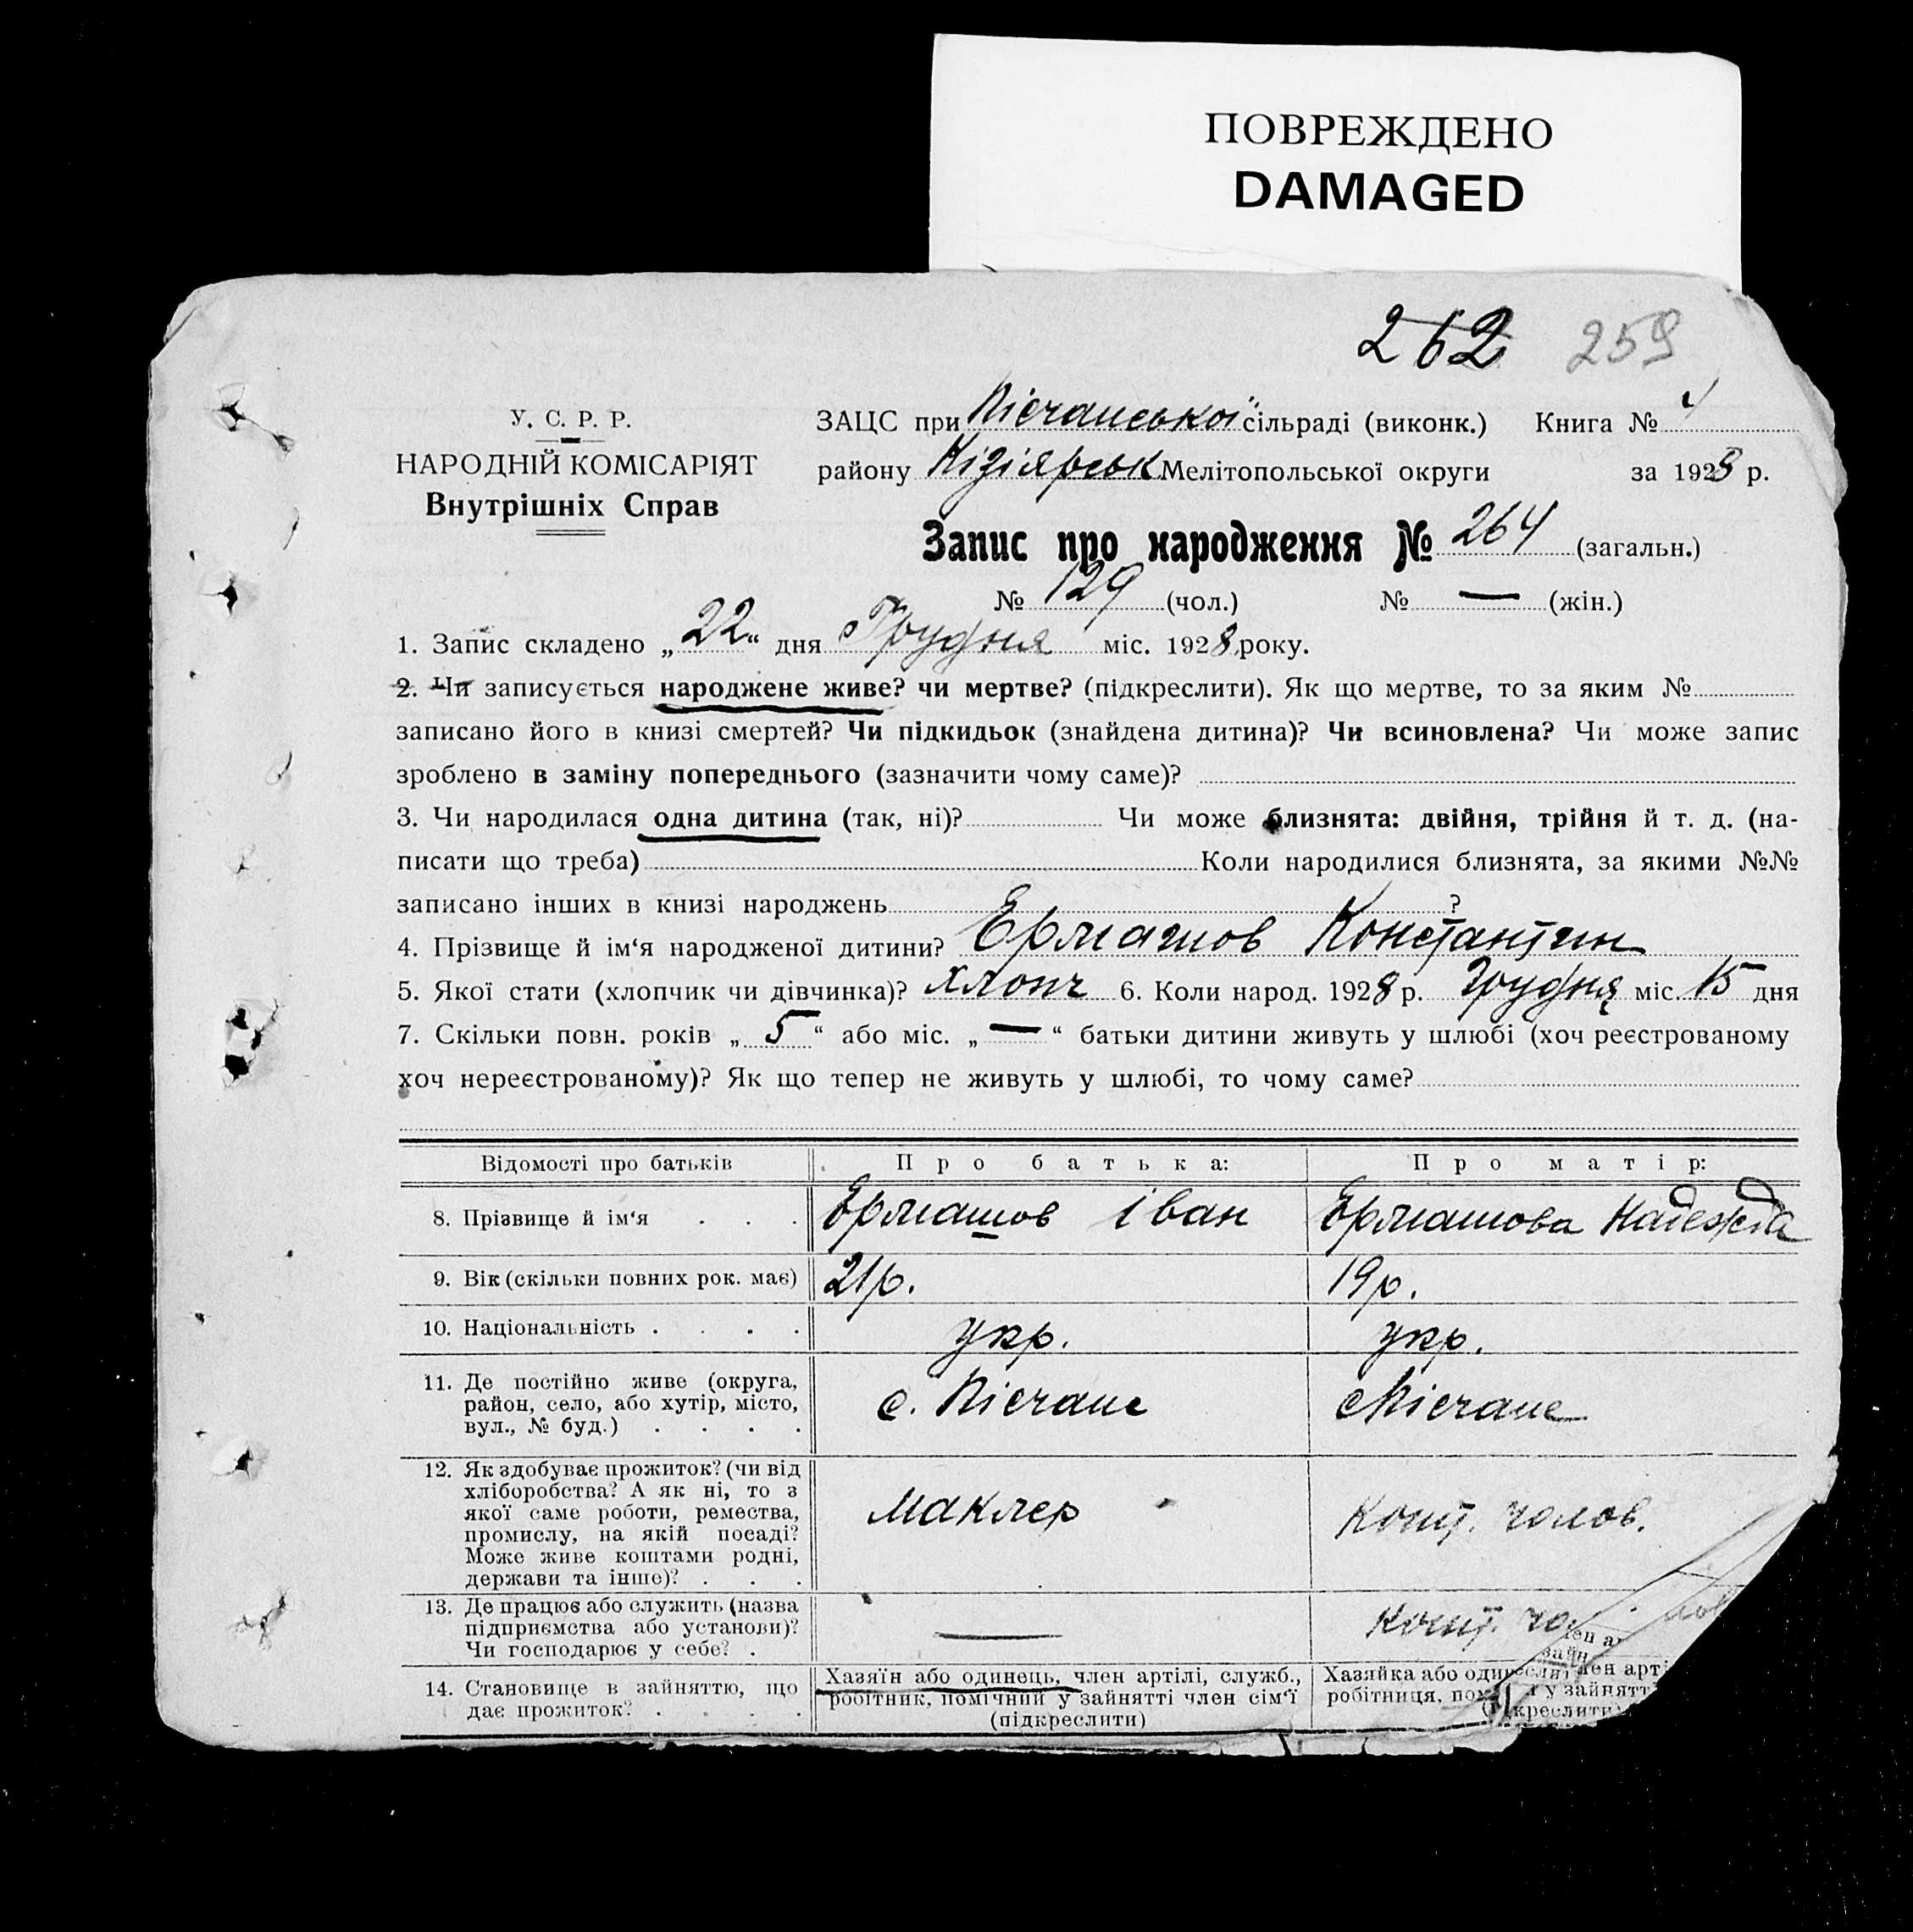 ПОВРЕЖДЕНО
DAMAGED
262 259
У. С. Р. Р.
НАРОДНІЙ КОМІСАРІЯТ
Внутрішніх Справ
ЗАЦС при Пісчанської сільраді (виконк.) Книга № 4
району Кізіярськ Мелітопольської округи за 1928 р.
Запис про народження № 264 (загальн.)
№ 129 (чол.) № — (жін.)
1. Запис складено „22“ дня Грудня міс. 1928 року.
2. Чи записується народжене живе? чи мертве? (підкреслити). Як що мертве, то за яким №
записано його в книзі смертей? Чи підкидьок (знайдена дитина)? Чи всиновлена? Чи може запис
зроблено в заміну попереднього (зазначити чому саме)?
3. Чи народилася одна дитина (так, ні)? Чи може близнята: двійня, трійня й т. д. (на-
писати що треба) Коли народилися близнята, за якими №№
записано інших в книзі народжень ?
4. Прізвище й ім‘я народженої дитини? Ермашов Константин
5. Якої стати (хлопчик чи дівчинка)? хлопч 6. Коли народ. 1928 р. Грудня міс. 15 дня
7. Скільки повн. років „5“ або міс. „—“ батьки дитини живуть у шлюбі (хоч реєстрованому
хоч нереєстрованому)? Як що тепер не живуть у шлюбі, то чому саме?
Відомості про батьків Про батька: Про матір:
8. Прізвище й ім‘я . . . Ермашов Іван Ермашова Надежда
9. Вік (скільки повних рок. має) 21 р. 19 р.
10. Національність . . . . укр. укр.
11. Де постійно живе (округа,
район, село, або хутір, місто,
вул., № буд.) . . . .
с. Пісчане с Пісчане
12. Як здобуває прожиток? (чи від
хліборобства? А як ні, то з
якої саме роботи, ремества,
промислу, на якій посаді?
Може живе коштами родні,
держави та інше)? . . .
маклер кошт. чолов.
13. Де працює або служить (назва
підприємства або установи)?
Чи господарює у себе? .
— кошт. чо
14. Становище в зайняттю, що
дає прожиток? . . . .
Хазяїн або одинець, член артілі, служб.,
робітник, помічний у зайнятті член сім‘ї
(підкреслити)
Хазяйка або один член арті
робітниця, по у зайнятт
креслити